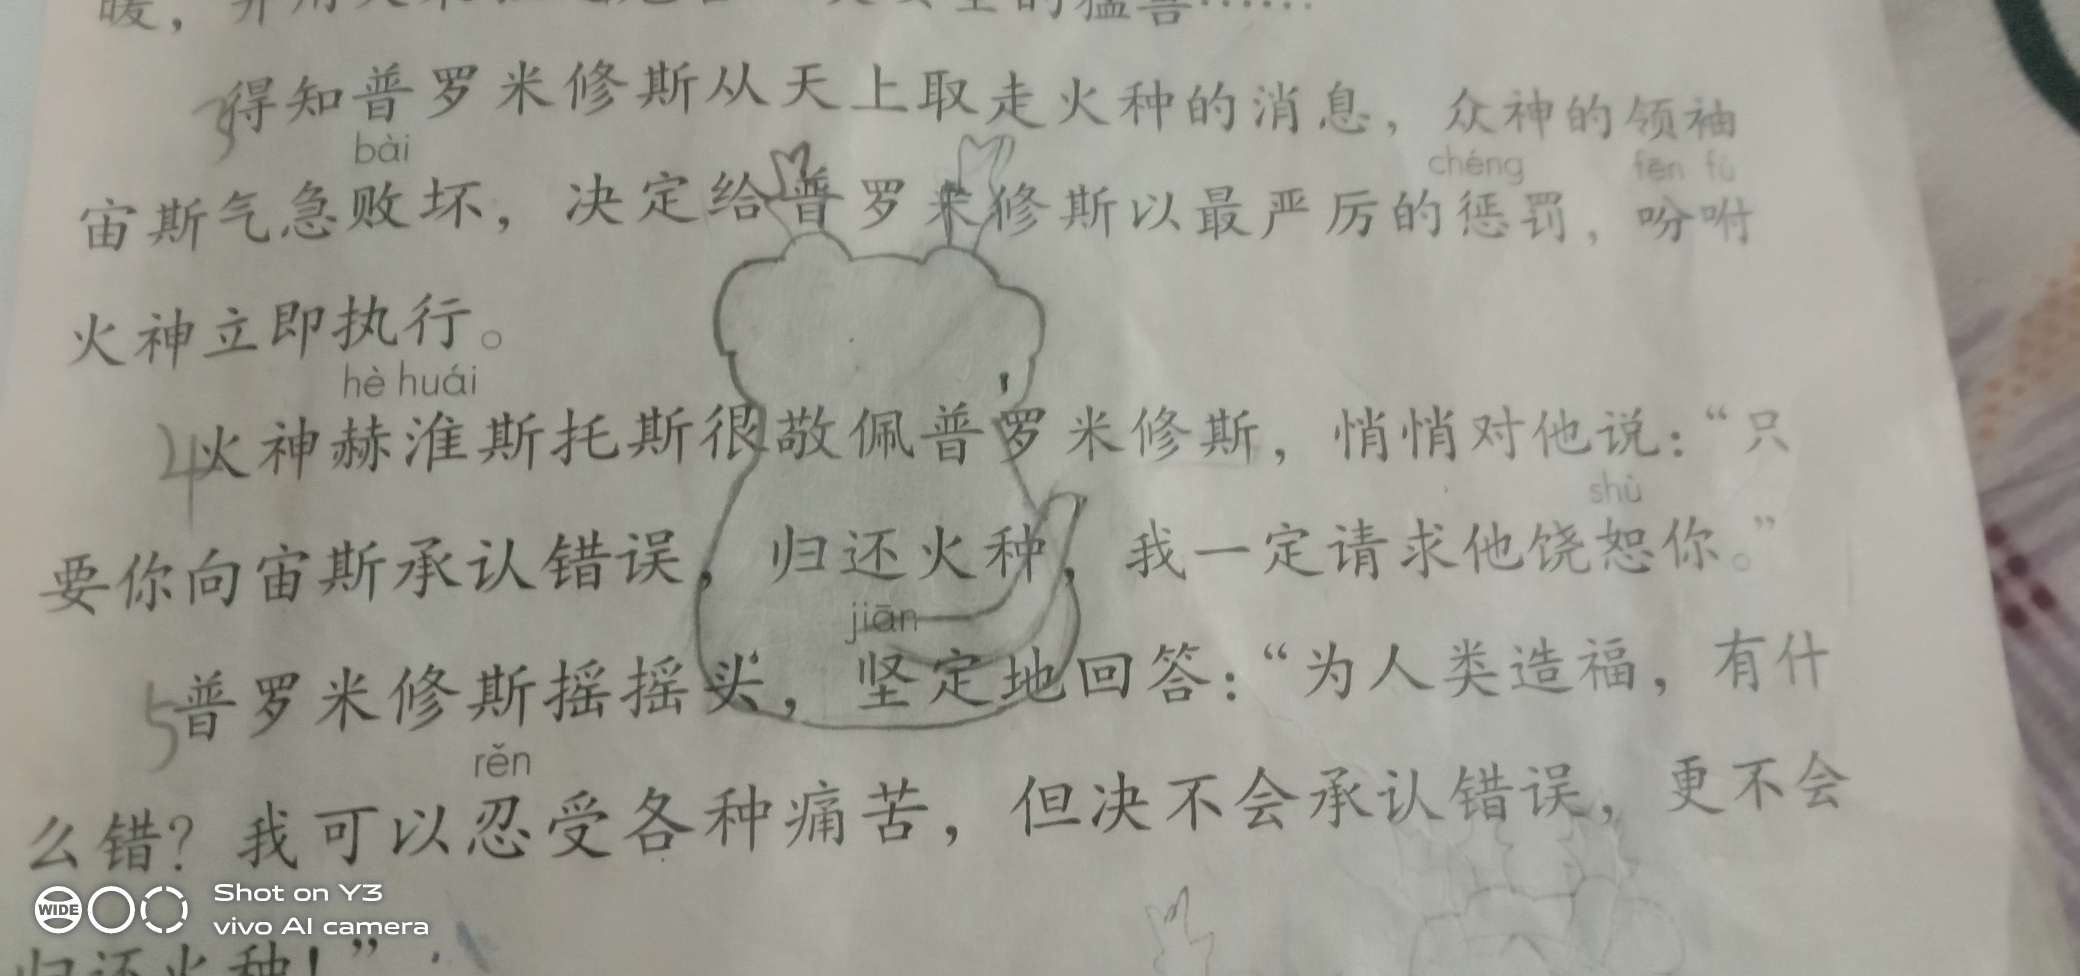 得知普罗米修斯从天上取走火种的消息，众神的领袖
bài chéng fēn fù
宙斯气急败坏，决定给普罗米修斯以最严厉的惩罚，吩咐
火神立即执行。
hè huái
4火神赫淮斯托斯很敬佩普罗米修斯，悄悄对他说：“只
shù
要你向宙斯承认错误，归还火种，我一定请求他饶恕你。”
jiān
5普罗米修斯摇摇头，坚定地回答：“为人类造福，有什
rěn
么错？我可以忍受各种痛苦，但决不会承认错误，更不会
WIDE Shot on Y3
vivo AI camera
归还火种！”